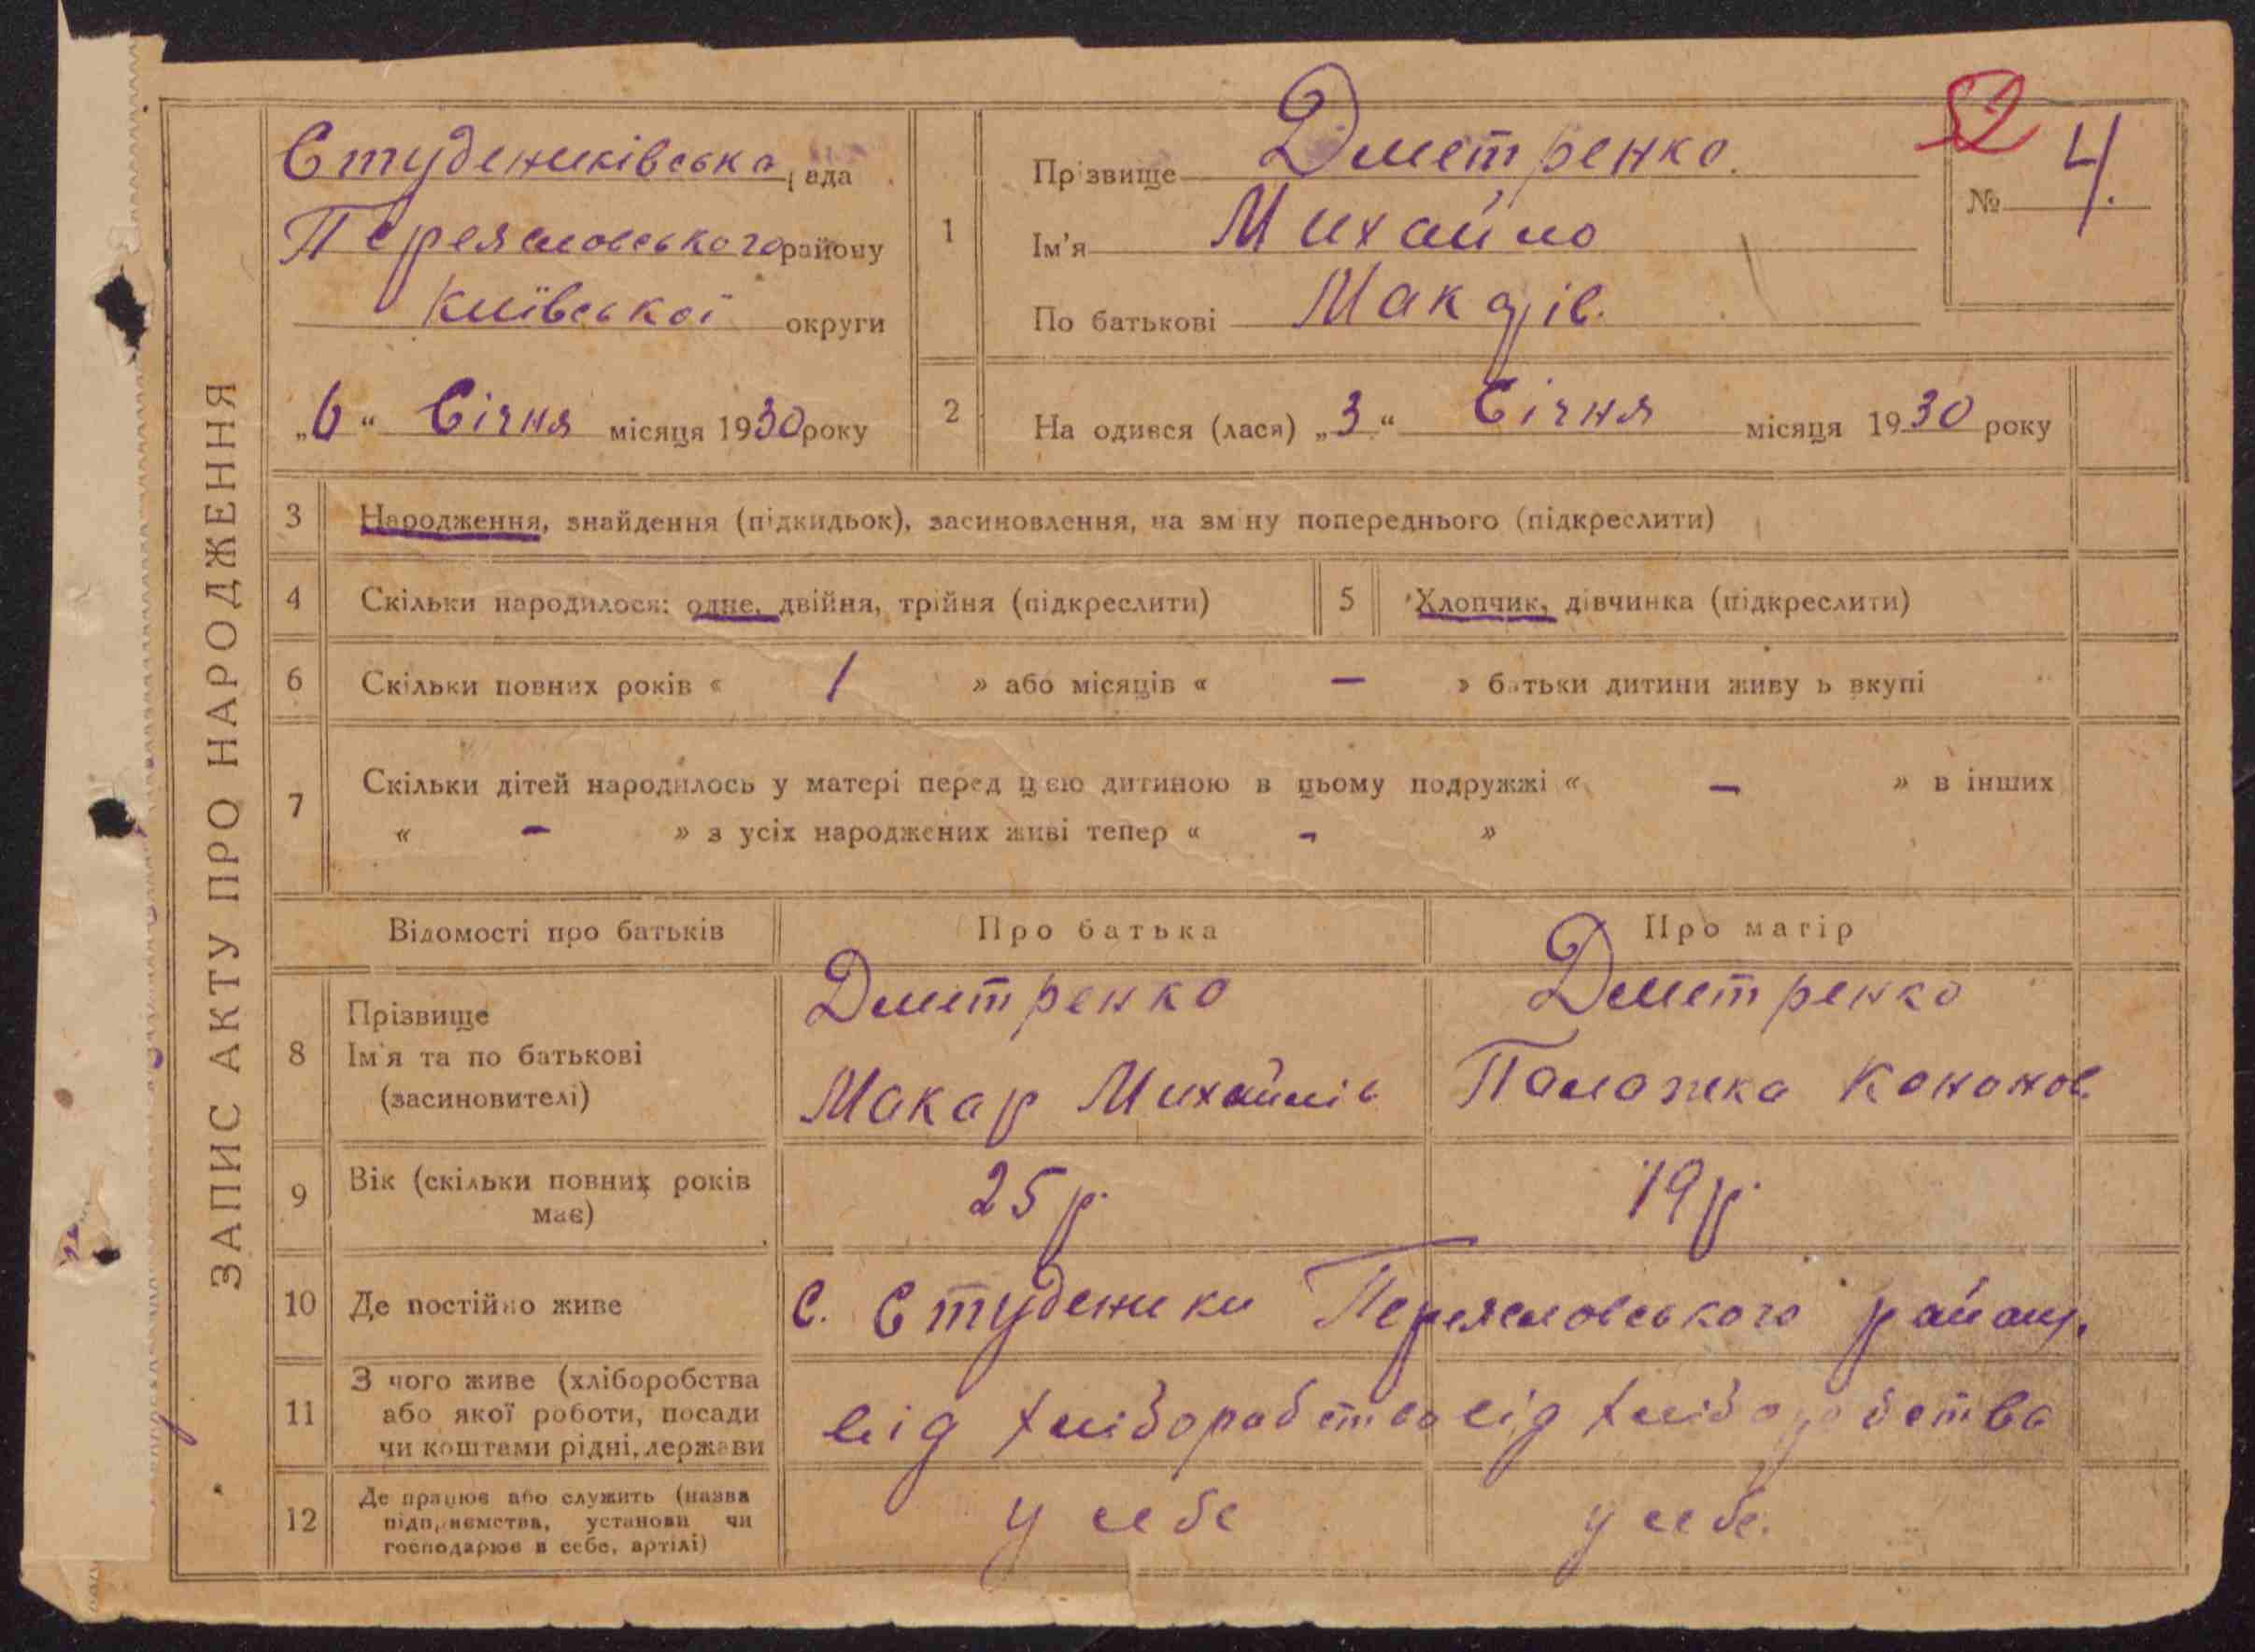 ЗАПИС АКТУ ПРО НАРОДЖЕННЯ
Студениківська рада
Переяславського району
Київської округи
„6“ Січня місяця 1930 року
52
№ 4.
1
Прізвище Дметренко.
Ім'я Михайло
По батькові Макарів.
2
Народився (лася) „3“ Січня місяця 1930 року
3 Народження, знайдення (підкидьок), засиновлення, на зміну попереднього (підкреслити)
4 Скільки народилося: одне, двійня, трійня (підкреслити)
5 Хлопчик, дівчинка (підкреслити)
6 Скільки повних років « 1 » або місяців « – » батьки дитини живуть вкупі
7 Скільки дітей народилось у матері перед цією дитиною в цьому подружжі « – » в інших
« – » з усіх народжених живі тепер « – »
Відомості про батьків Про батька Про матір
8 Прізвище Дметренко Дметренко
Ім'я та по батькові Макар Михайлів Палажка Кононов.
(засиновителі)
9 Вік (скільки повних років має) 25 р. 19 р.
10 Де постійно живе с. Студеники Переяславського району.
11 З чого живе (хліборобства
або якої роботи, посади
чи коштами рідні, держави
від хліборобства від хліборобства
12 Де працює або служить (назва
підприємства, установи чи
господарює в себе, артілі)
у себе у себе.